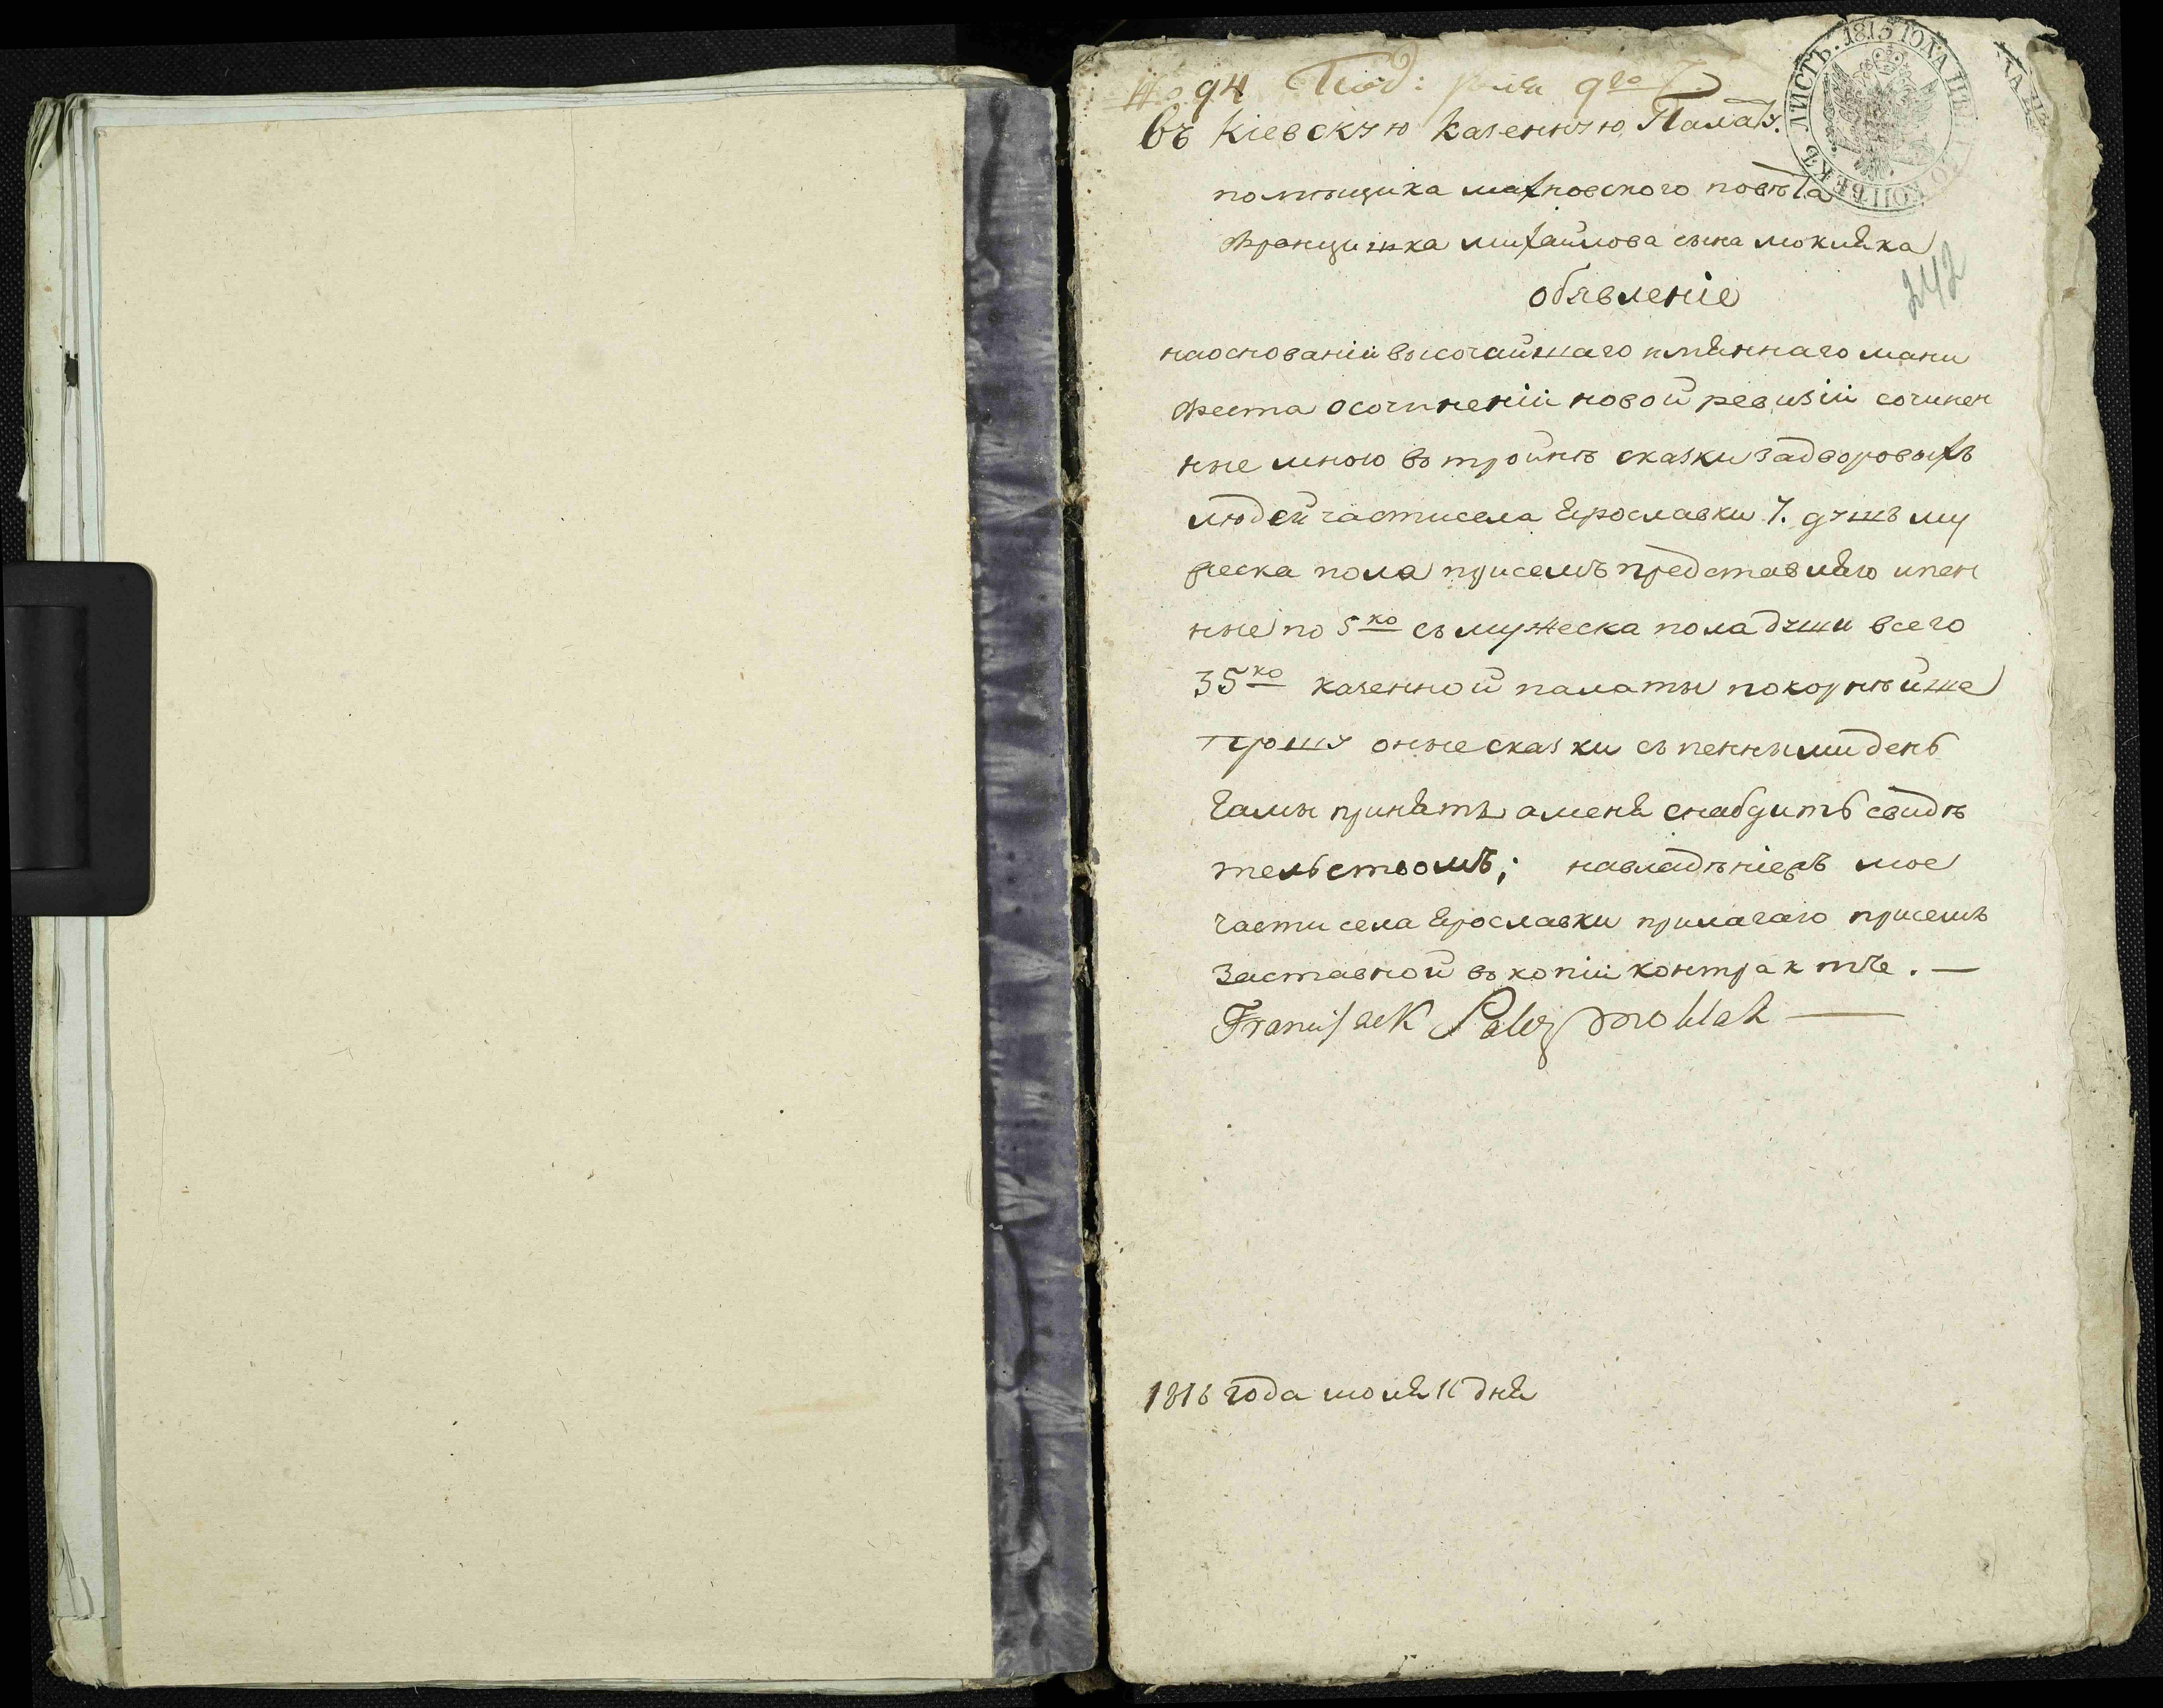 № 94 Под: июля 9го
ЛИСТЪ. 1815 ГОДА КОПѢЕКЪ
въ Кіевскую Казенную Палату.
помѣщика махновского повѣта
Францишка михайлова сына
242
обявленіе
наоснованіи высочайшаго имяннаго мани
феста осочиненіи новой ревизіи сочинен
ные мною втройнѣ сказки задворовыхъ
людей части села Ярославки 7. душъ му
жеска пола присемъ представляю ипен
ные по 5ко съ мужеска пола души всего
35ко казенной палаты покорнѣйше
прошу оные сказки съ пенными день
гамы принять аменя снабдить свидѣ
тельствомъ; навладѣніе мое
части села Ярославки прилагаю присемъ
заставной въ копіи контрактъ. —
Francisek
1816 года июля 11 дня